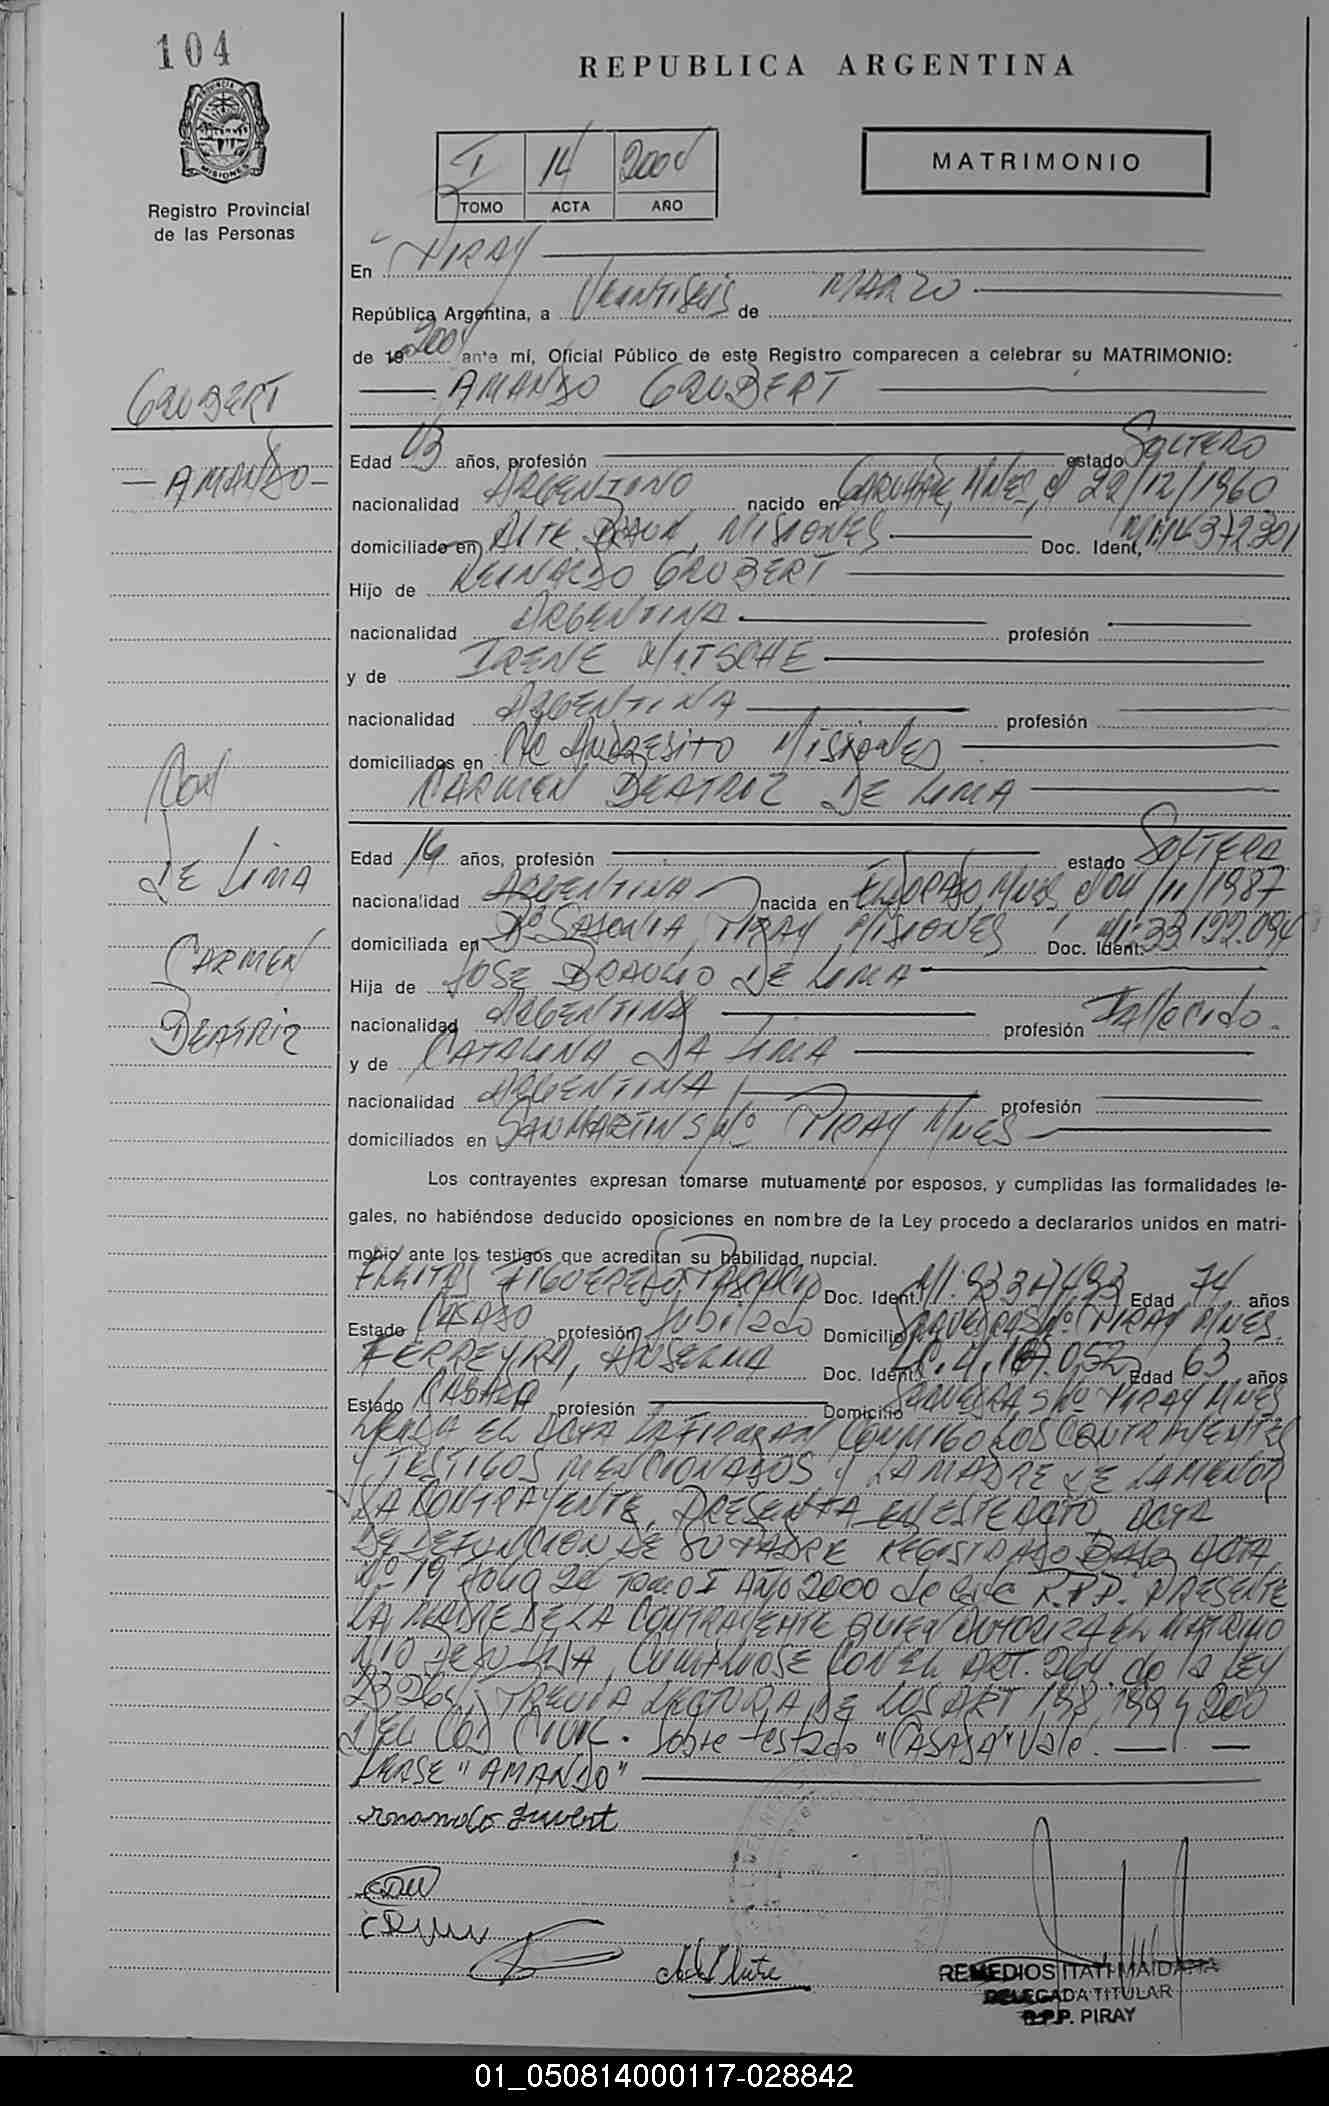 104
REPUBLICA ARGENTINA
MISIONES
Registro Provincial
de las Personas
I 14 2004
TOMO ACTA AÑO
MATRIMONIO
En PIRAY
República Argentina, a Veintiseis de MARZO
de 19 2004 ante mí, Oficial Público de este Registro comparecen a celebrar su MATRIMONIO:
AMANDO GRUBERT
GRUBERT
- AMANDO -
Edad 43 años, profesión estado SOLTERO
nacionalidad ARGENTINO nacido en GARUHAPE, MNES, el 22/12/1960
domiciliado en ALTE. BROWN, MISIONES Doc. Ident. MI:14.372.301
Hijo de REINALDO GRUBERT
nacionalidad ARGENTINA profesión
y de IRENE NITSCHE
nacionalidad ARGENTINA profesión
domiciliados en ANDRESITO Misiones
CARMEN BEATRIZ DE LIMA
Con
DE LIMA
CARMEN
BEATRIZ
Edad 16 años, profesión estado SOLTERA
nacionalidad ARGENTINA nacida en ELDORADO, MNES, el 04/11/1987
domiciliada en PIRAY, MISIONES Doc. Ident. MI:33.192.094
Hija de JOSE BRAULIO DE LIMA
nacionalidad ARGENTINA profesión Fallecido.
y de CATALINA DA LIMA
nacionalidad ARGENTINA profesión
domiciliados en SAN MARTIN S/Nº PIRAY MNES
Los contrayentes expresan tomarse mutuamente por esposos, y cumplidas las formalidades le-
gales, no habiéndose deducido oposiciones en nombre de la Ley procedo a declararlos unidos en matri-
monio ante los testigos que acreditan su habilidad nupcial.
FLEITAS FIGUEREDO, Doc. Ident. MI: Edad 74 años
Estado CASADO profesión Jubilado Domicilio S/Nº PIRAY MNES.
FERREYRA, ANSELMA Doc. Ident. LC. 4.187.052 Edad 63 años
Estado CASADA profesión Domicilio S/Nº PIRAY MNES
LEIDA EL ACTA LA FIRMAN CONMIGO LOS CONTRAYENTES
Y TESTIGOS MENCIONADOS Y LA MADRE DE LA MENOR
LA CONTRAYENTE, PRESENTA EN ESTE ACTO, ACTA
DE DEFUNCION DE SU PADRE REGISTRADO BAJO ACTA
Nº 19 Folio 20 Tomo I AÑO 2000 de este R.P.P. PRESENTE
LA MADRE DE LA CONTRAYENTE QUIEN AUTORIZA EL MATRIMO
NIO DE SU HIJA, CUMPLIDOSE CON EL ART. 264 de la LEY
23264, PREVIA LECTURA DE LOS ART 198, 199 y 200
DEL COD CIVIL. Sobre testado "CASADA" Vale.
LEASE "AMANDO"
REMEDIOS ITATI MAIDANA
DELEGADA TITULAR
R.P.P. PIRAY
01_050814000117-028842